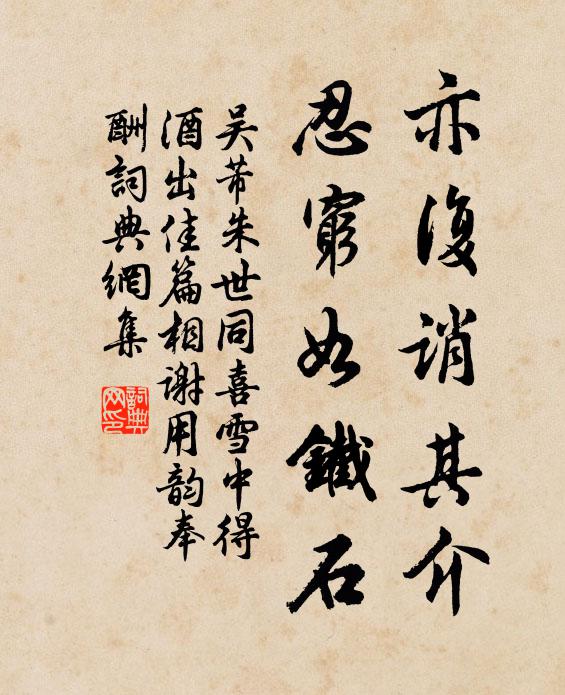 亦復誚其介
忍窮如鐵石
吴芾朱世同喜雪中得
酒出佳篇相謝用韵奉
酬詞典網集
詞典网印